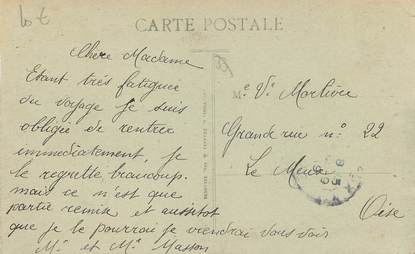 CARTE POSTALE
Chère Madame
Etant très fatiguée
du voyage je suis
obligée de rentrer
immédiatement, je
le regrette beaucoup.
mais ce n'est que
partie remise et aussitot
que je le pourrai je viendrai vous voir
Mr. et Me. Masson
Me. Ve. Marlière
Grande rue no. 22
Le Meux
Oise